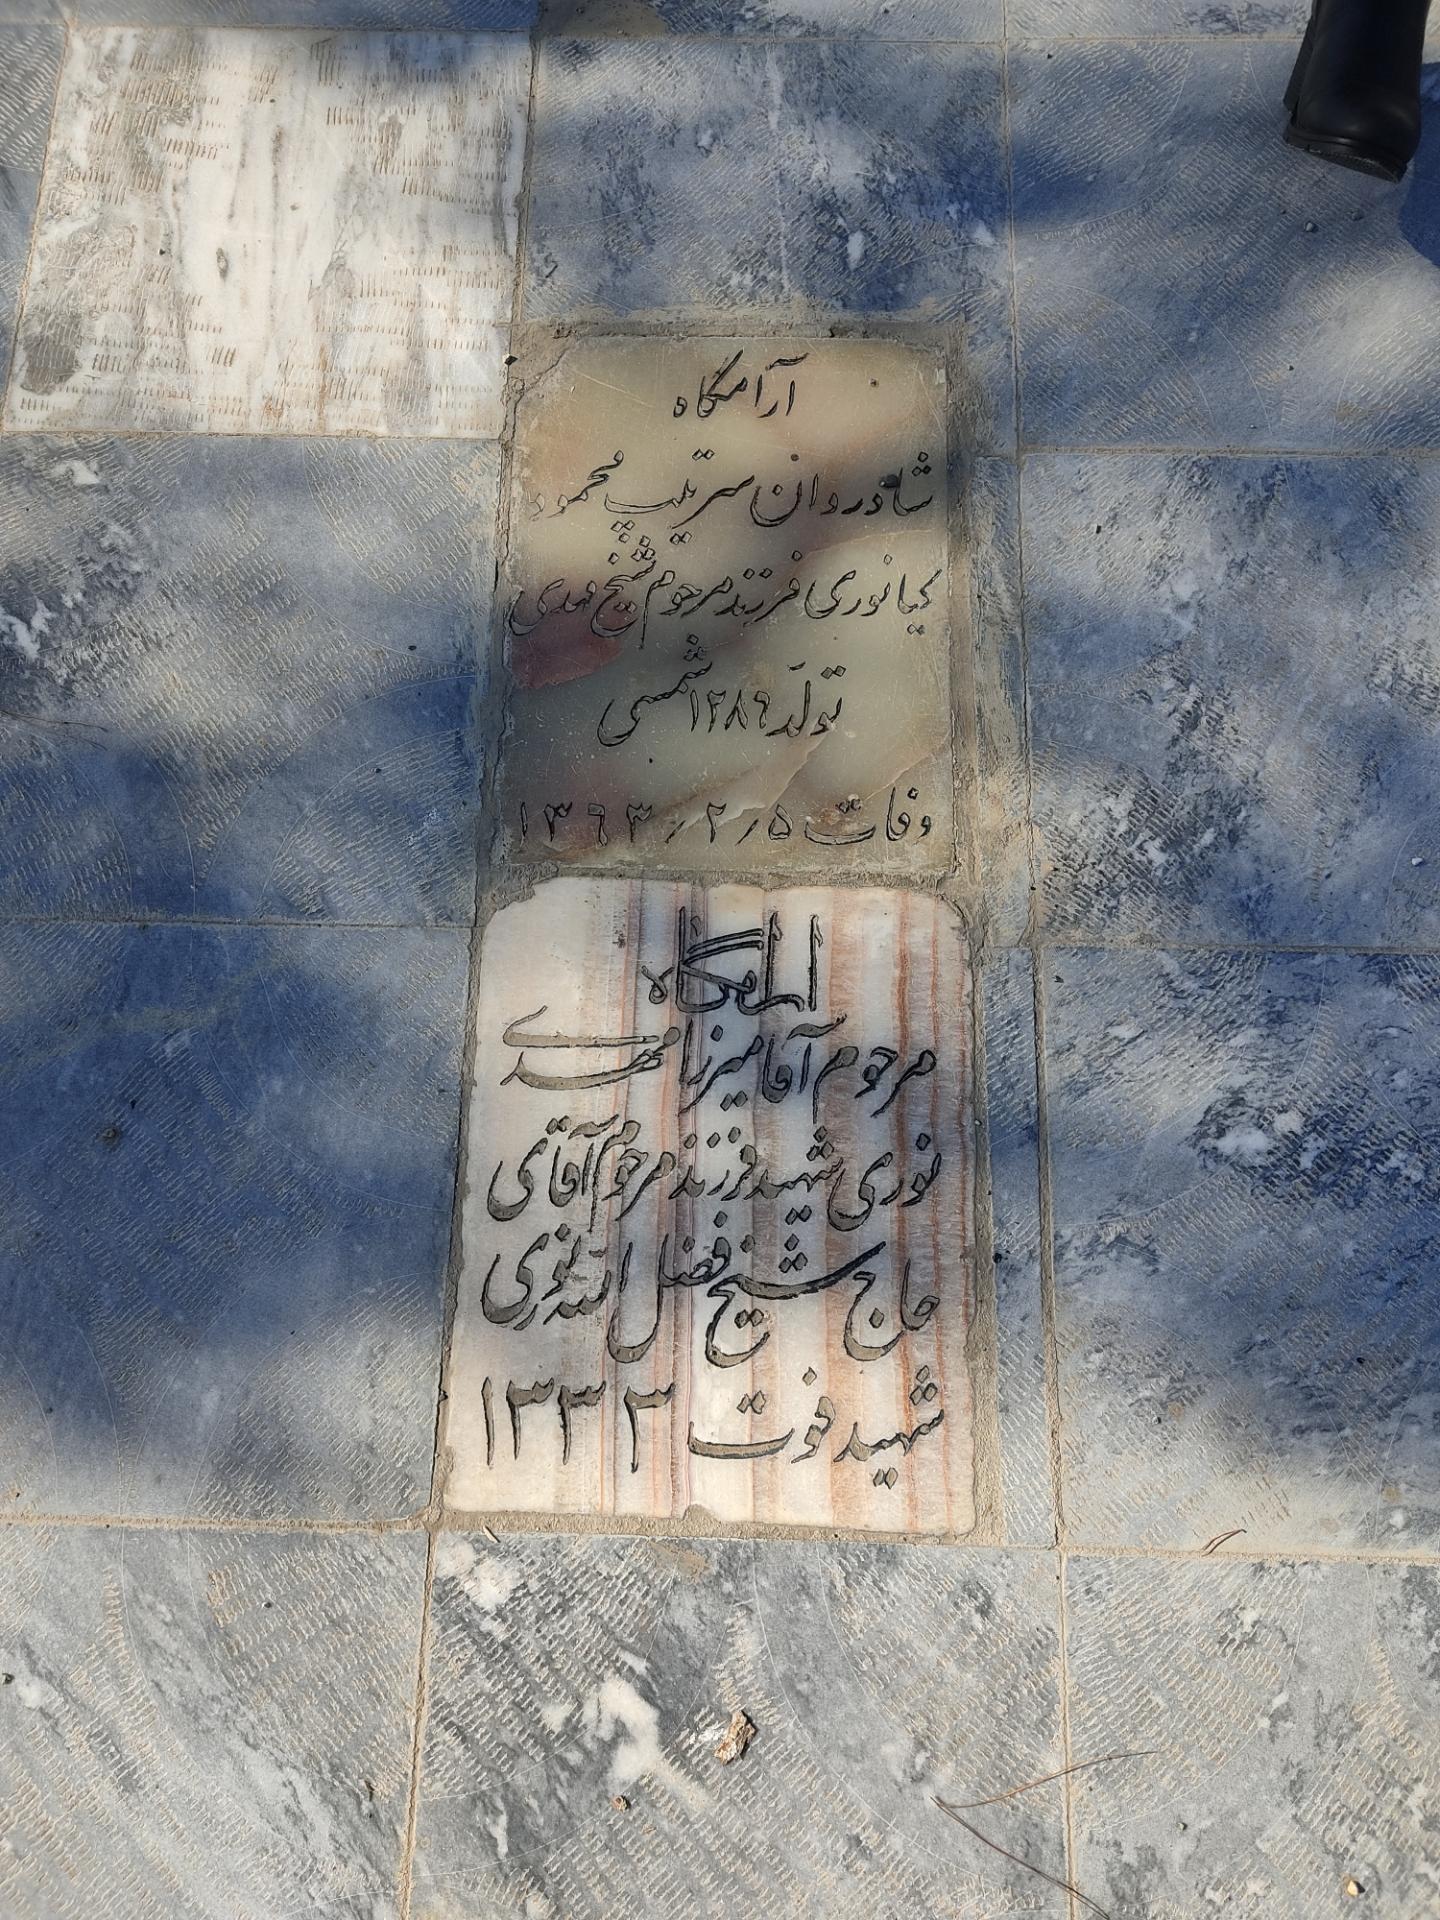 آرامگاه
شادروان سرتیپ محمود
کیانوری فرزند مرحوم شیخ مهدی
تولد ۱۲۸۹ شمسی
وفات ۵ / ۲ / ۱۳۶۳
ارامگاه
مرحوم آقا میرزا مهدی
نوری شهید فرزند مرحوم آقای
حاج شیخ فضل الله نوری
شهید فوت ۱۳۳۳